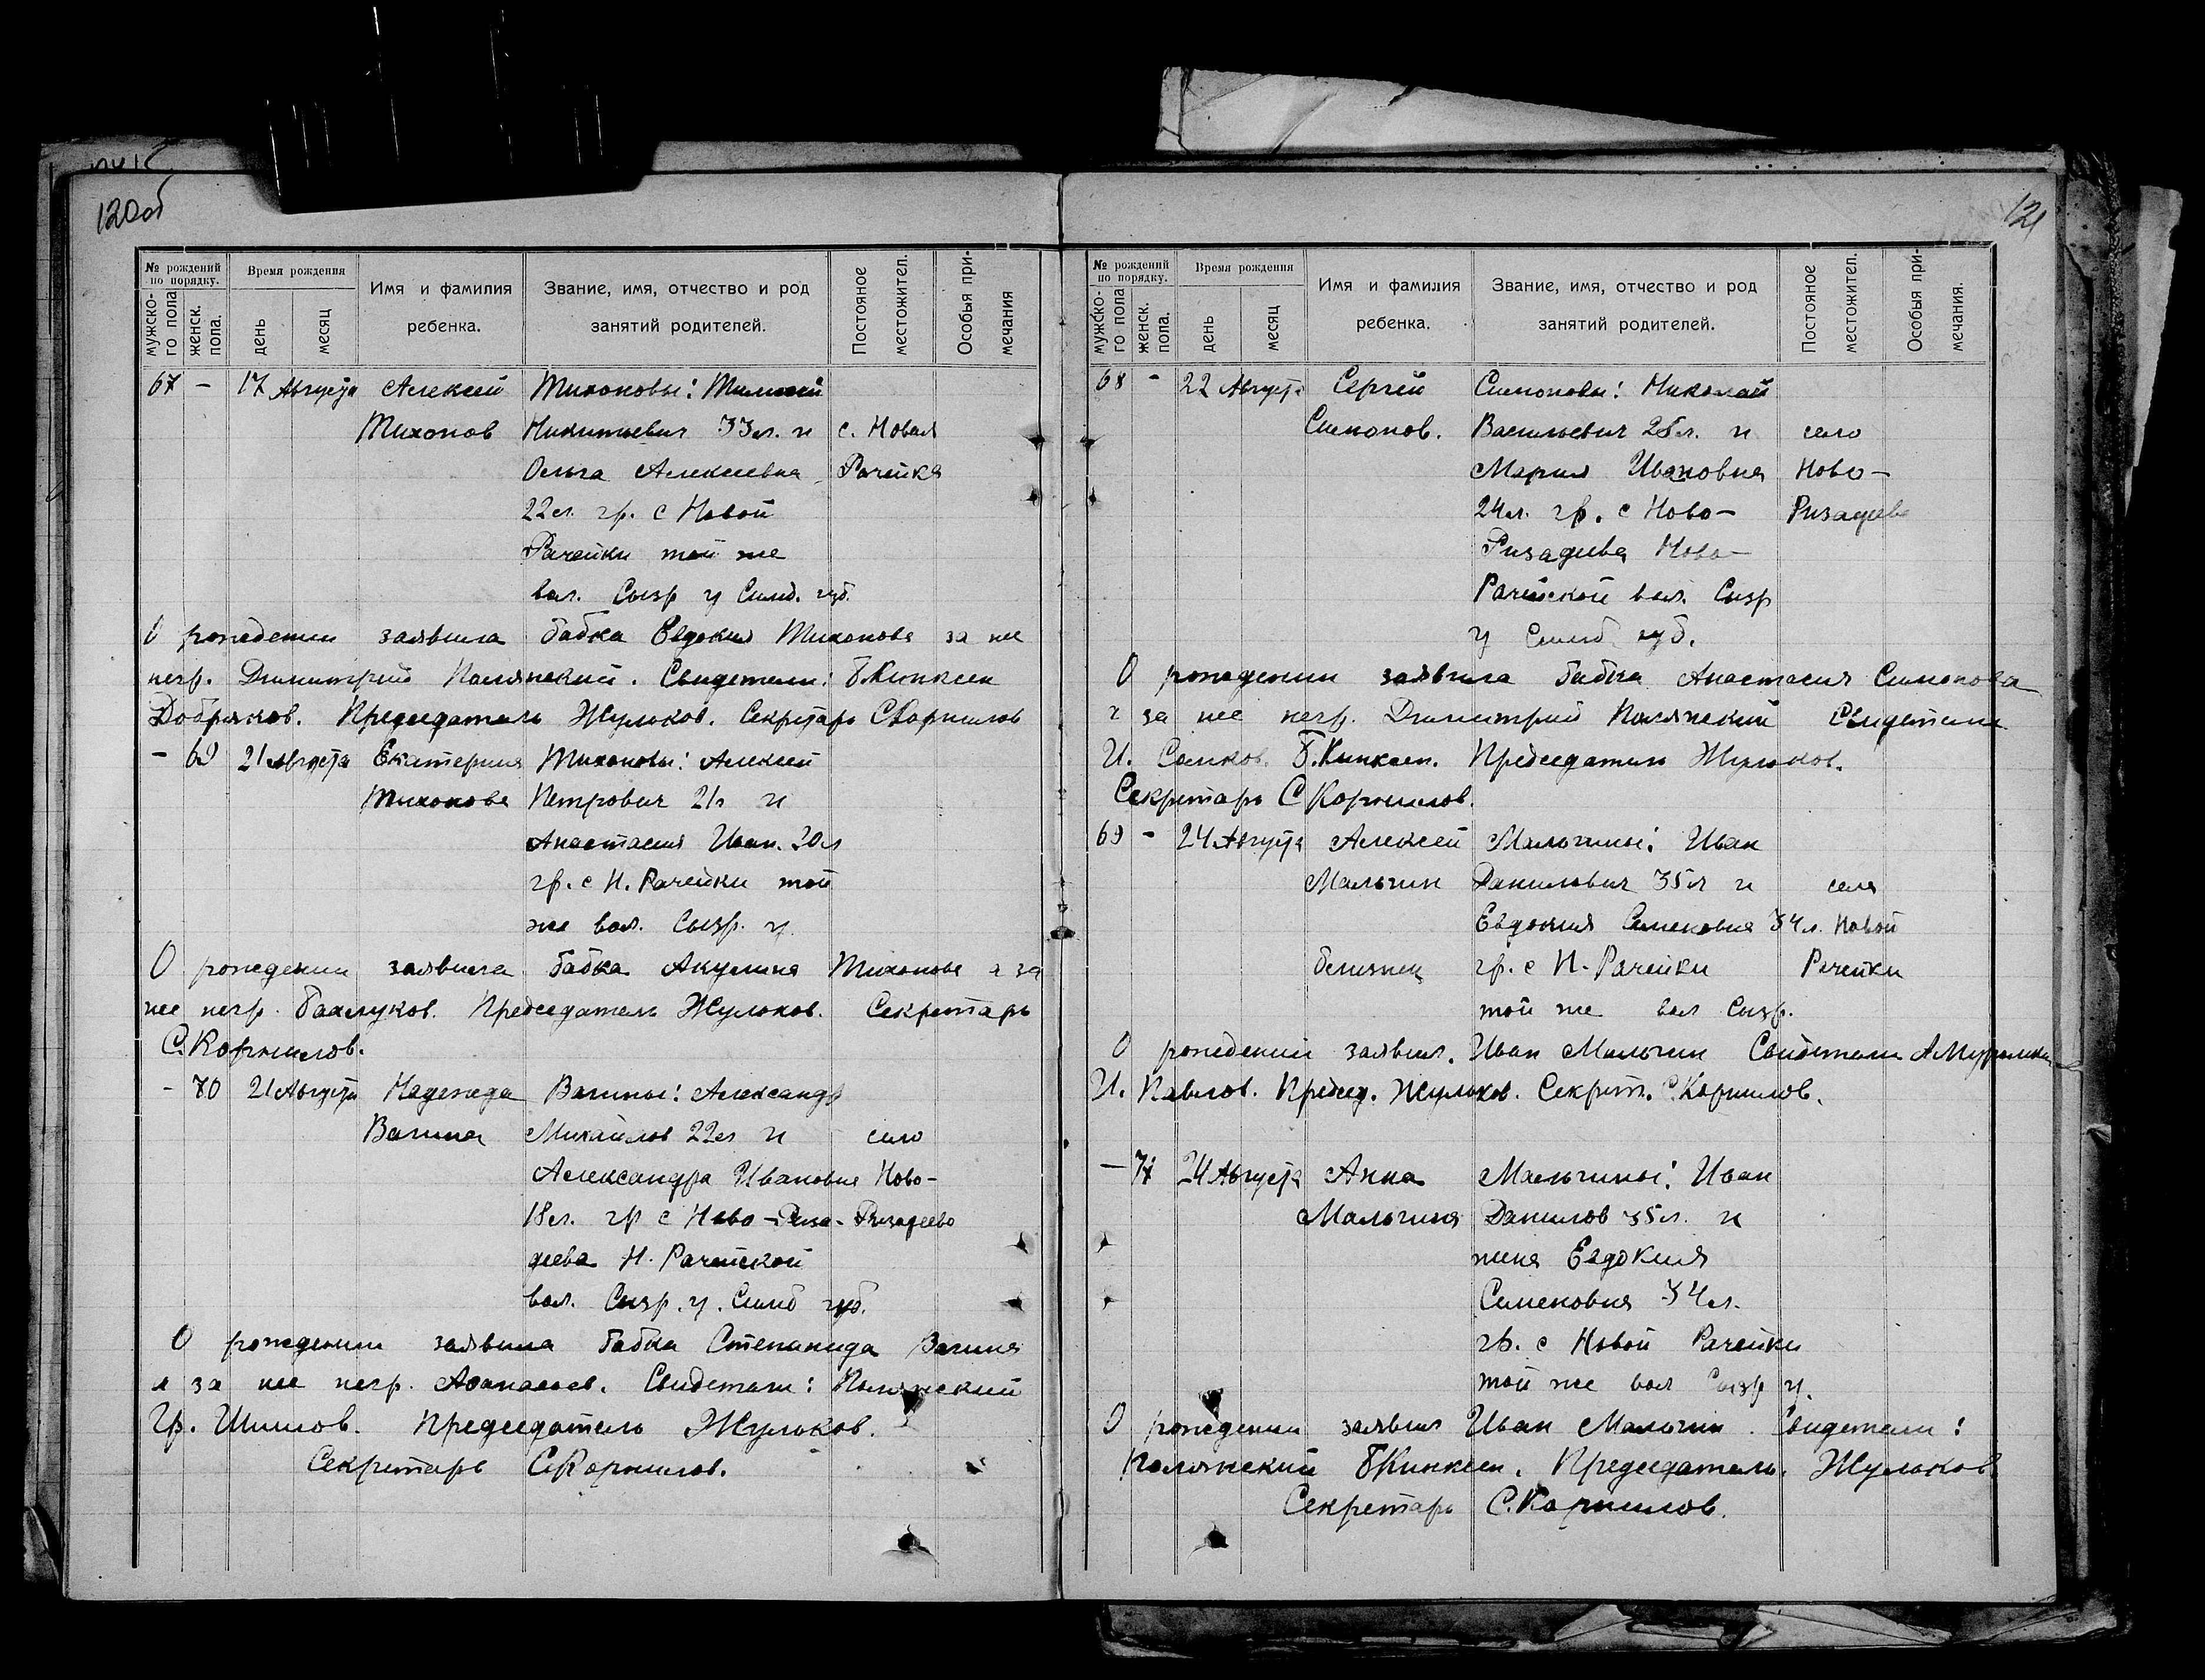 120об
№ рождений по порядку.
мужско-го пола
женск. пола.
Время рождения
день
месяц
Имя и фамилия ребенка.
Звание, имя, отчество и род занятий родителей.
Постояное местожител.
Особыя при-мечания
67 - 17 Августа Алексей Тихоновы:
Тихонов Никитьевич 33 л. и с. Новая
Ольга Алексеевна Рачейка
22 л. гр. с Новой
Рачейки той же
вол. Сызр у Симб. губ.
О рождении заявила бабка Евдокия Тихонова за нее
негр. Димитрий Полянский. Свидетели: Б.Кинксен
Добряков. Председатель Жульков. Секретарь С Корнилов
- 69 21 Августа Екатерина Тихоновы: Алексей
Тихонова Петрович 21 г и
Анастасия Иван. 20 л
гр. с Н. Рачейки той
же вол. Сызр. у.
О рождении заявила бабка Акулина Тихонова а за
нее негр. Председатель Жульков. Секретарь
С. Корнилов.
- 70 21 Августа Надежда Вагины: Александр
Вагина Михайлов 22 л и село
Александра Ивановна Ново-
18 л. гр с Ново-Риза- Ризадеево
деева Н. Рачейской
вол. Сызр. у. Симб губ.
О рождении заявила бабка Степанида Вагина
а за нее негр. Афанасьев. Свидетели: Полянский
Гр. Шишлов. Председатель Жульков.
Секретарь С Корнилов.
121
№ рождений по порядку.
мужско-го пола
женск. пола.
Время рождения
день
месяц
Имя и фамилия ребенка.
Звание, имя, отчество и род занятий родителей.
Постояное местожител.
Особыя при-мечания.
68 - 22 Августа Сергей Симоновы: Николай
Симонов. Васильевич 25 л. и село
Мария Ивановна Ново-
24 л. гр. с Ново- Ризадеева
Ризадеева Ново-
Рачейской вол. Сызр
у Симб губ.
О рождении заявила бабка Анастасия Симонова
а за нее негр. Димитрий Полянский Свидетели
И. Б.Кинксен. Председатель Жульков.
Секретарь С Корнилов.
69 - 24 Августа Алексей Мальгины: Иван
Мальгин Данилович 35 л и села
Евдокия Семеновна 34 л. Новой
близнец гр. с Н. Рачейки Рачейки
той же вол Сызр.
О рождении заявил. Иван Мальгин Свидетели
И. Павлов. Председ. Жульков. Секрет. С. Корнилов.
- 71 24 Августа Анна Мальгины: Иван
Мальгина Данилов 35 л. и
жена Евдокия
Семеновна 34 л.
гр. с Новой Рачейки
той же вол Сызр у.
О рождении заявил Иван Мальгин. Свидетели:
Полянский Б Кинксен. Председатель. Жульков
Секретарь С. Корнилов.